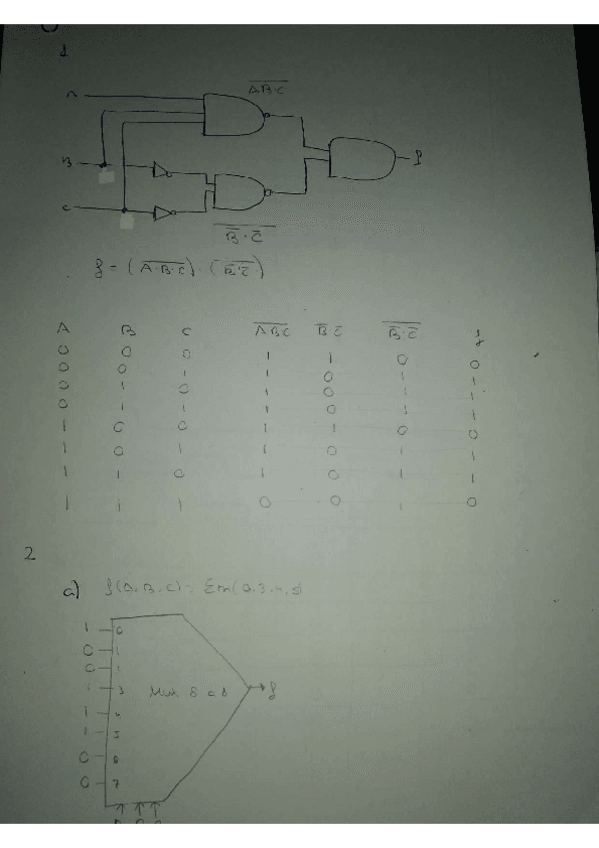 1
A
$\overline{AB \cdot C}$
B
f
C
$\overline{\overline{B} \cdot \overline{C}}$
f = ($\overline{A \cdot B \cdot C}$) · ($\overline{\overline{B}\,\overline{C}}$)
A B C $\overline{ABC}$ $\overline{B}\,\overline{C}$ $\overline{\overline{B} \cdot \overline{C}}$ f
0 0 0 1 1 0 0
0 0 1 1 0 1 1
0 1 0 1 0 1 1
0 1 1 1 0 1 1
1 0 0 1 1 0 0
1 0 1 1 0 1 1
1 1 0 1 0 1 1
1 1 1 0 0 1 0
2
a) f(A, B, C) = Σm(0,3,4,5)
1 0
0 1
0
1 3
Mux 8 a 1
f
1 4
1 5
0 6
0 7